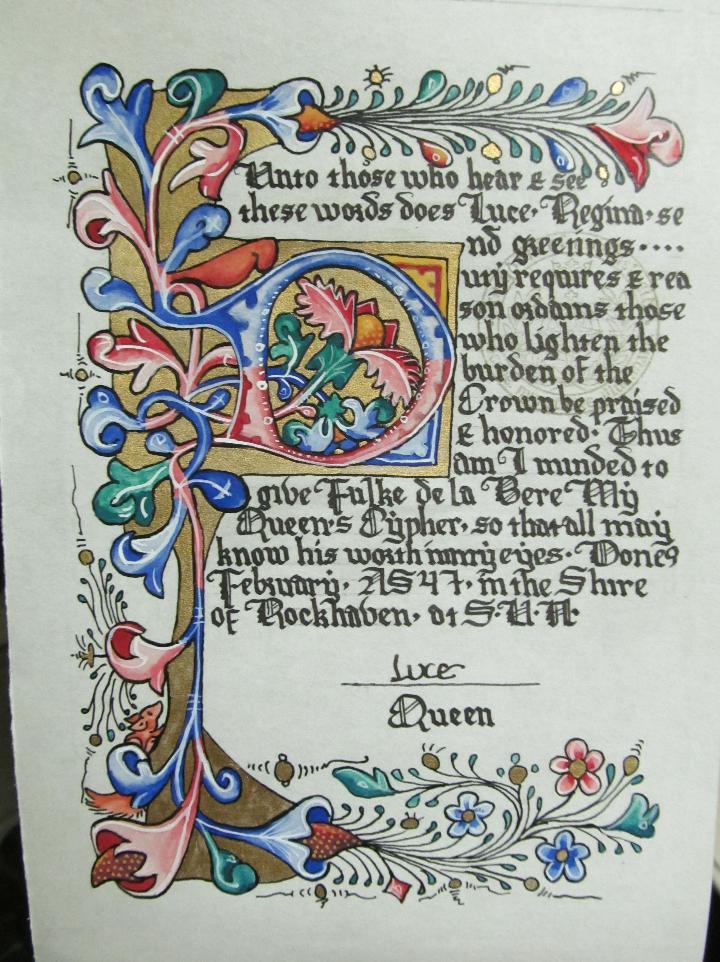 Unto those who hear & see
these words does Luce, Regina, se
nd greetings....
ury requires & rea
son ordains those
who lighten the
burden of the
Crown be praised
& honored. Thus
am I minded to
give Fulke de la Vere My
Queen's Cypher, so that all may
know his worth in my eyes. Done 9
February, AS 47, in the Shire
of Rockhaven, at S.U.N.
Luce
Queen